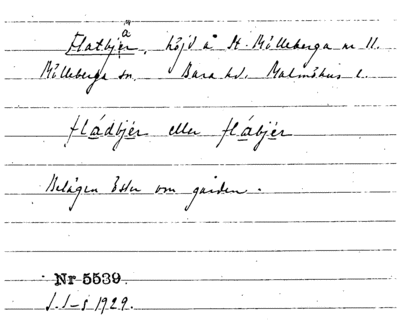 ä
Flatbjer, höjd å St. Mölleberga nr 11.
Mölleberga sn. Bara hd. Malmöhus l.
fládbjér eller flábjér
Belägen öster om gården.
Nr 5539.
1929.